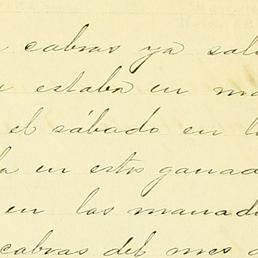 cabras ya sal
estaba en ma
el sábado en l
en estos ganad
en las manad
cabras del mes